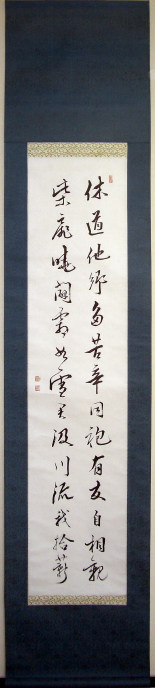 休道他郷多苦辛同袍有友自相親
柴扉暁開霜如雪君汲川流我拾薪